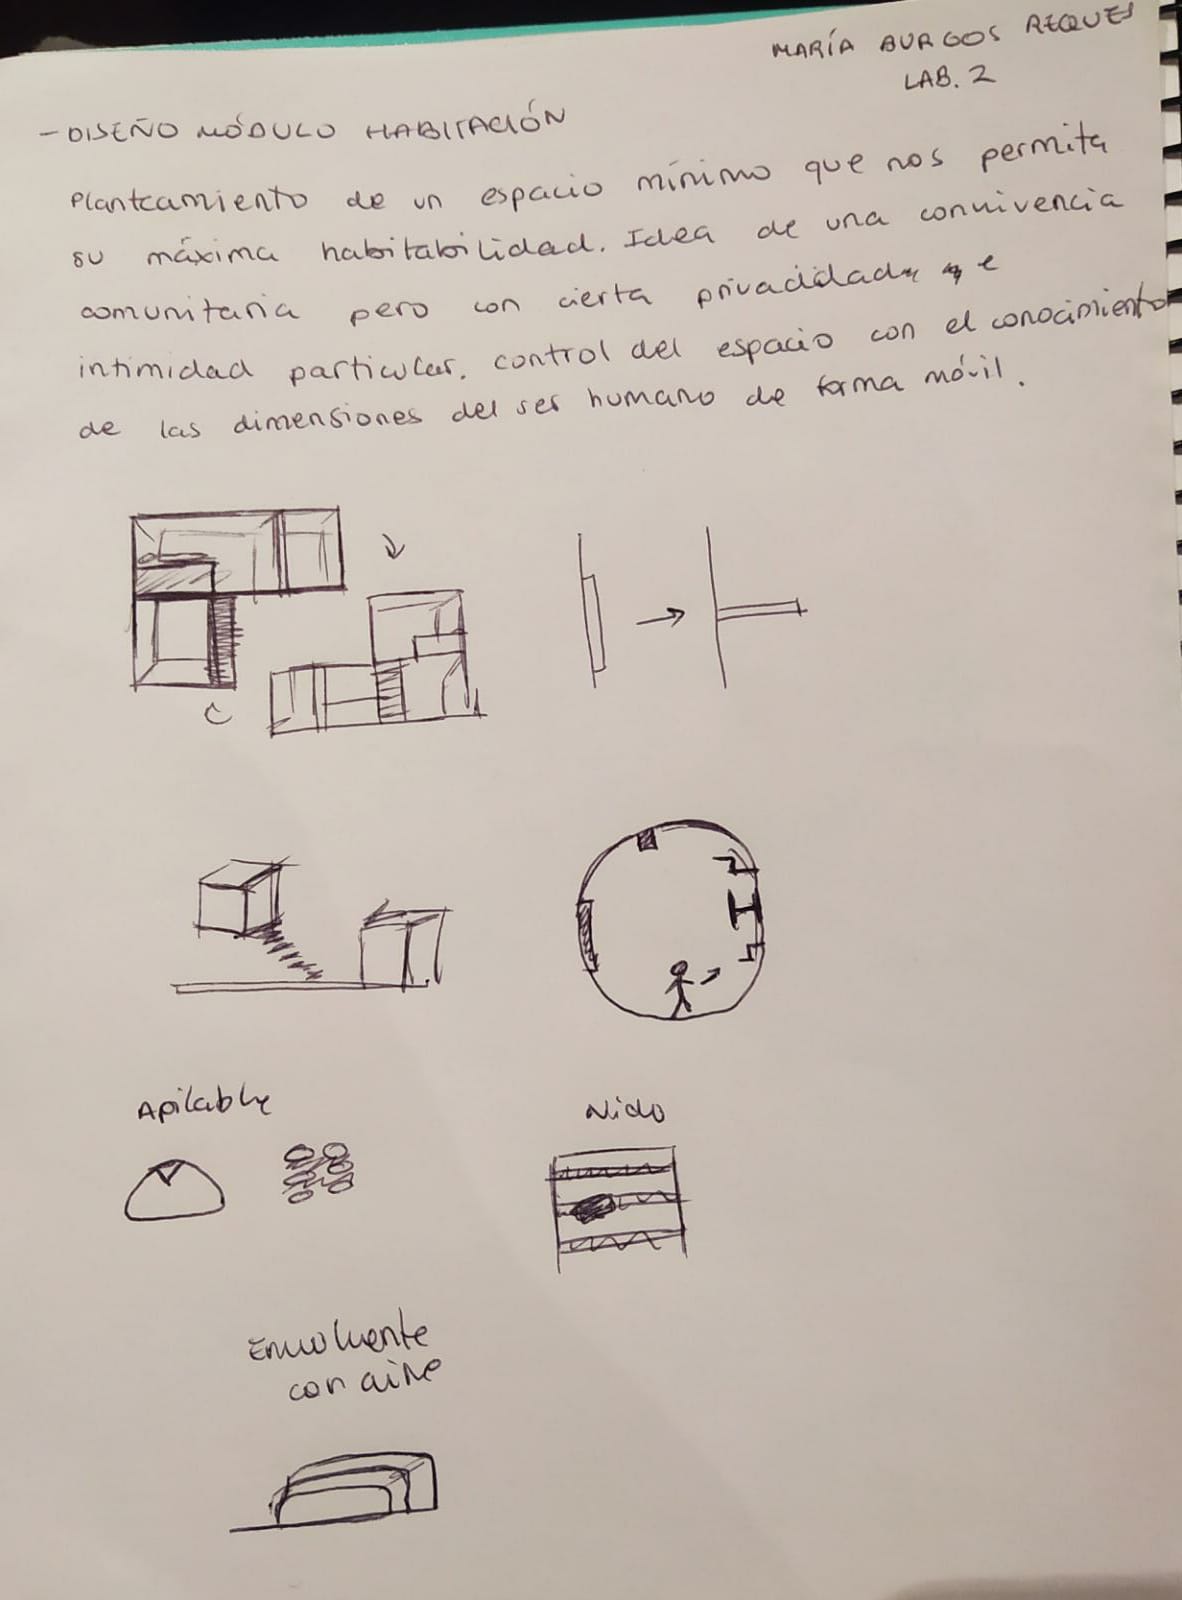 MARÍA BURGOS REQUES
LAB. 2
- DISEÑO MÓDULO HABITACIÓN
Planteamiento de un espacio mínimo que nos permita
su máxima habitabilidad. Idea de una convivencia
comunitaria pero con cierta privacidad e
intimidad particular. control del espacio con el conocimiento
de las dimensiones del ser humano de forma móvil.
Apilable
Nido
Envolvente
con aire